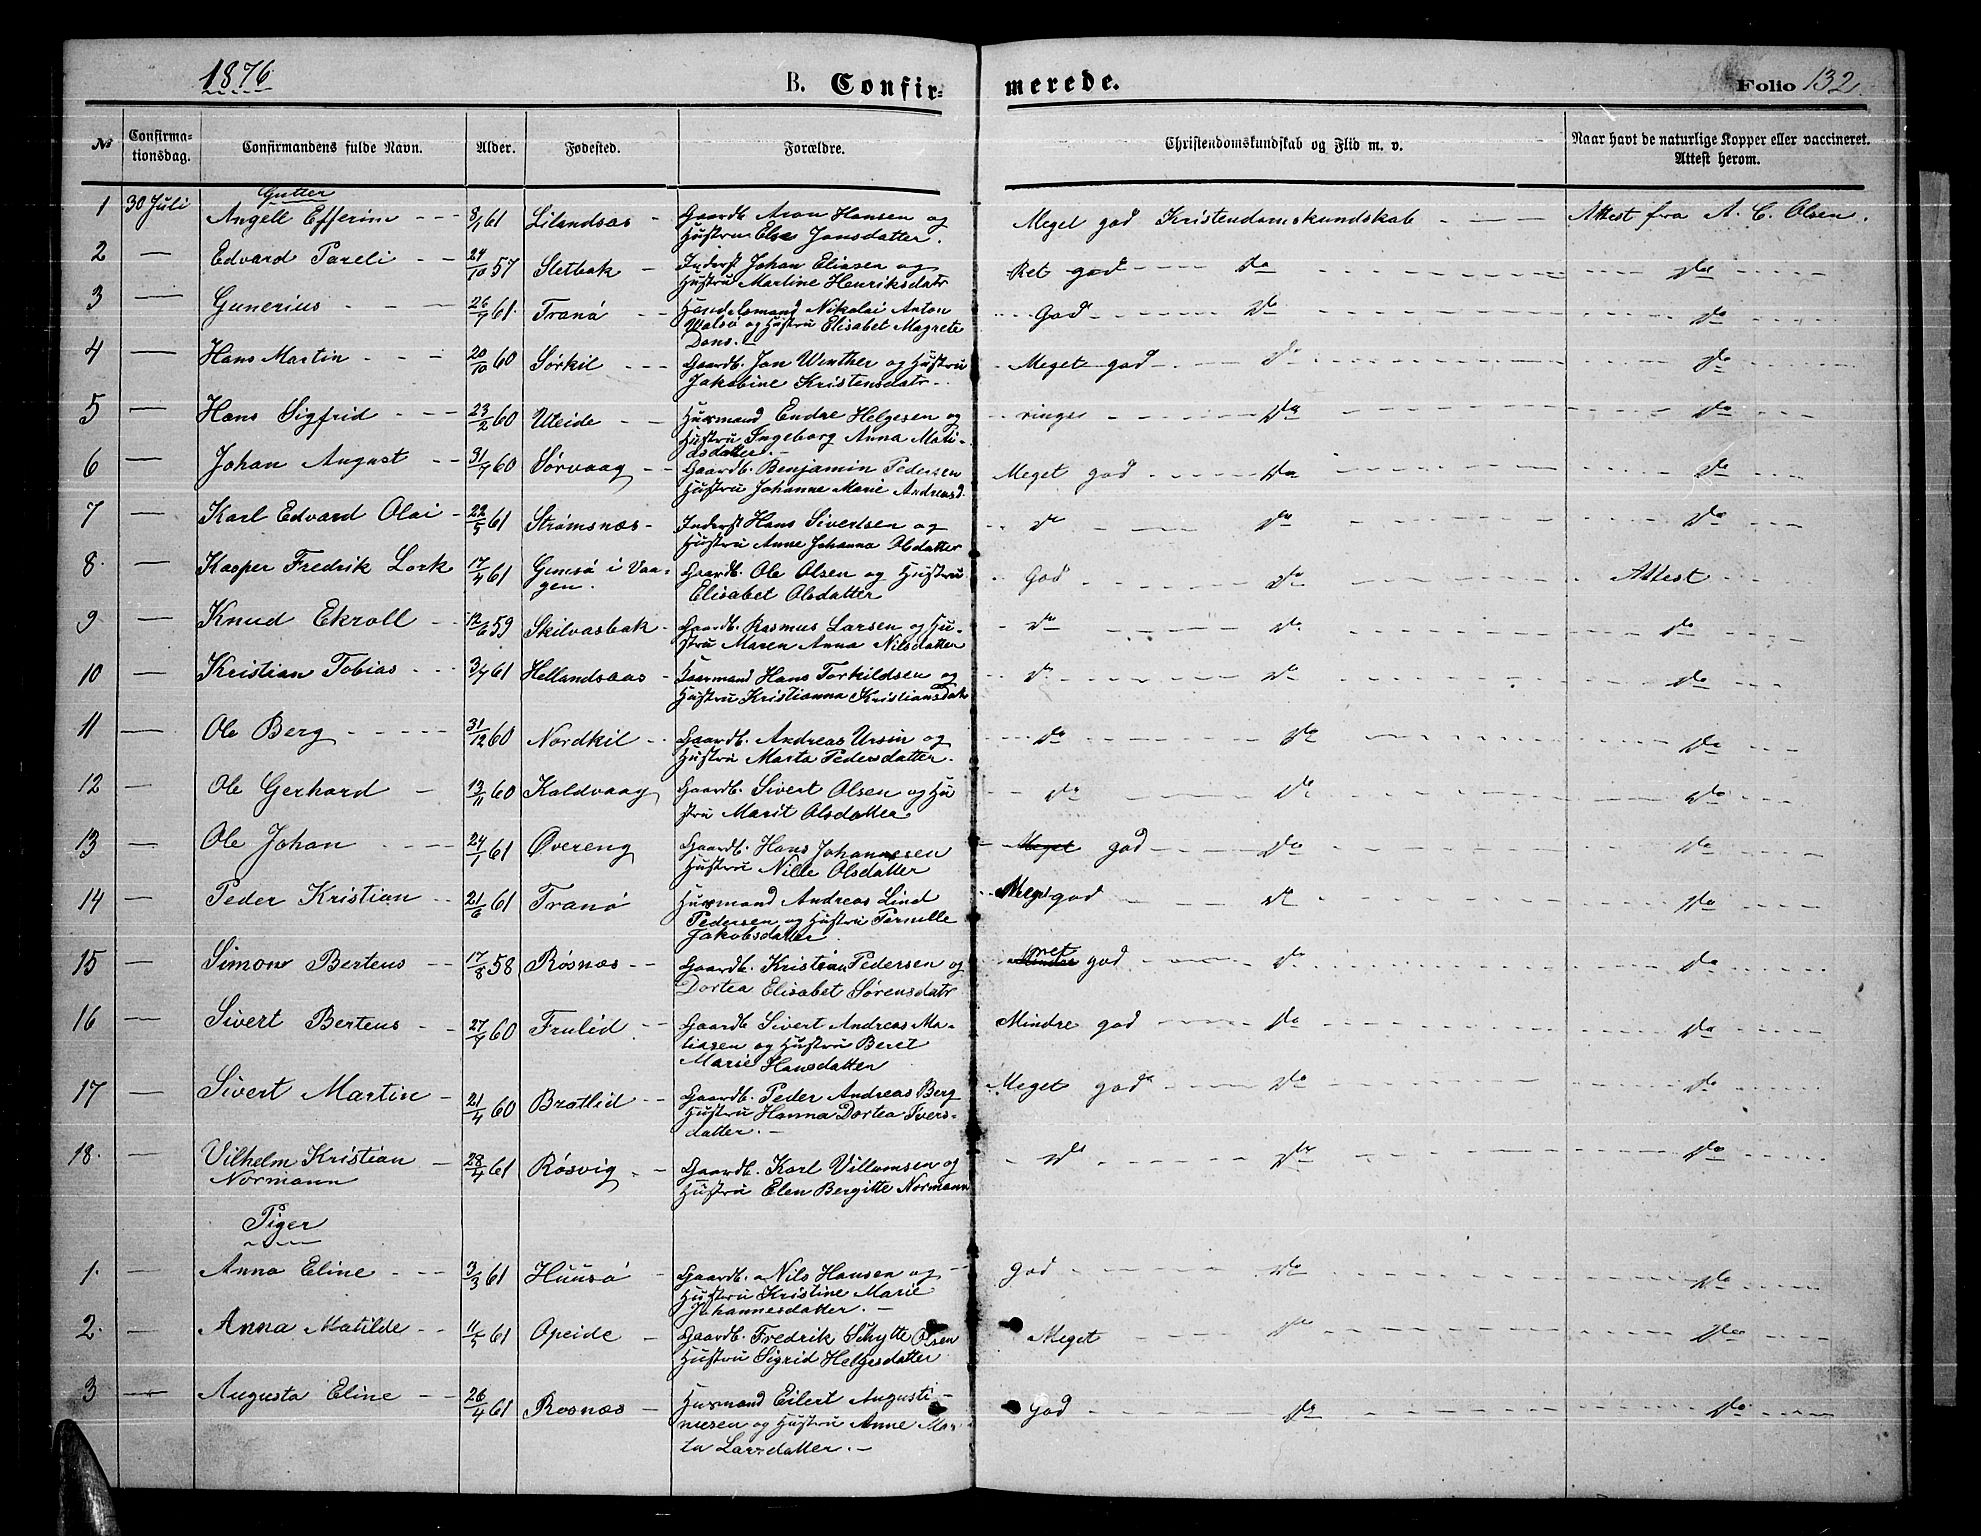 1876 B. Confirmerede. Folio 132.
№ Confirmationsdag. Confirmandens fulde Navn. Alder. Fødested. Forældre. Christendomskundskab og Flid m. v. Naar havt de naturlige Kopper eller vaccineret. Attest herom.
Gutter
1 30 Juli Angell Efferim 8/1 61 Lilandsaas Gaardb. Aron Hansen og Meget god Kristendomskundskab Attest fra A. C. Olsen.
Hustru Else Jonsdatter.
2 — Edvard Pareli 24/10 57 Sletbak Inderst Johan Eliasen og Ret god do do
Hustru Martine Henriksdatr
3 — Gunerius 26/9 61 Tranø Handelsmand Nikolai Anton God do do
Walsø og Hustru Elisabet Magrete
Dons.
4 — Hans Martin 20/10 60 Sørkil Gaardb. Jon Winther og Hustru Meget god do do
Jakobine Kristensdatr
5 — Hans Sigfrid 23/2 60 Uteide Husmand Endre Helgesen og ringe do do
Hustru Ingeborg Anna Mati-
asdatter.
6 — Johan August 31/7 60 Sørvaag Gaardb. Benjamin Pedersen Meget god do do
Hustru Johanne Marie Andreasd.
7 — Karl Edvard Olai 22/5 61 Strømsnæs Inderst Hans Sivertsen og do do do
Hustru Anne Johanna Olsdatter
8. — Kasper Fredrik Lork 17/4 61 Gimsø i Vaa- Gaardb. Ole Olsen og Hustru God do Attest
gen. Elisabet Olsdatter
9 — Knud Ekroll 12/6 59 Skilvasbak Gaardb. Rasmus Larsen og Hu- do do do
stru Maren Anna Nilsdatter
10 — Kristian Tobias 3/7 61 Hellandsaas Husmand Hans Torkildsen og do do do
Hustru Kristianna Kristiansdatr
11 — Ole Berg 31/12 60 Nordkil Gaardb. Andreas Ursin og do do do
Hustru Marta Pedersdatter.
12 — Ole Gerhard 13/11 60 Kaldvaag Gaardb. Sivert Olsen og Hu do do do
stru Marit Olsdatter
13 — Ole Johan 24/1 61 Øvereng Gaardb. Hans Johannesen Meget god do do
Hustru Nille Olsdatter
14 — Peder Kristian 21/6 61 Tranø Husmand Andreas Lind Meget god do do
Pedersen og Hustru Pernille
Jakobsdatter
15 — Simon Berteus 17/8 58 Røsnæs Gaardb. Kristian Pedersen og Mindre ret god do do
Dortea Elisabet Sørensdatr
16 — Sivert Berteus 27/9 60 Frulid Gaardb Sivert Andreas Ma- Mindre god do do
tiasen og Hustru Beret
Marie Hansdatter
17 — Sivert Martin 21/4 60 Bratlid Gaardb. Peder Andreas Berg Meget god do do
Hustru Hanna Dortea Ivers-
datter.
18. — Vilhelm Kristian 28/4 61 Røsvig Gaardb. Karl Villumsen og do do do
Normann Hustru Elen Bergitte Normann
Piger
1. — Anna Eline 3/3 61 Huusø Gaardb. Nils Hansen og God do do
Hustru Kristine Marie
Johannesdatter.
2. — Anna Matilde 11/5 61 Opeide Gaardb. Fredrik Schytte Olsen Meget do do
Hustru Sigrid Helgesdatter
3 — Augusta Eline 26/4 61 Rosnæs Husmand Eilert Augusti- God do do
niesen og Hustru Anne Mar-
ta Larsdatter.